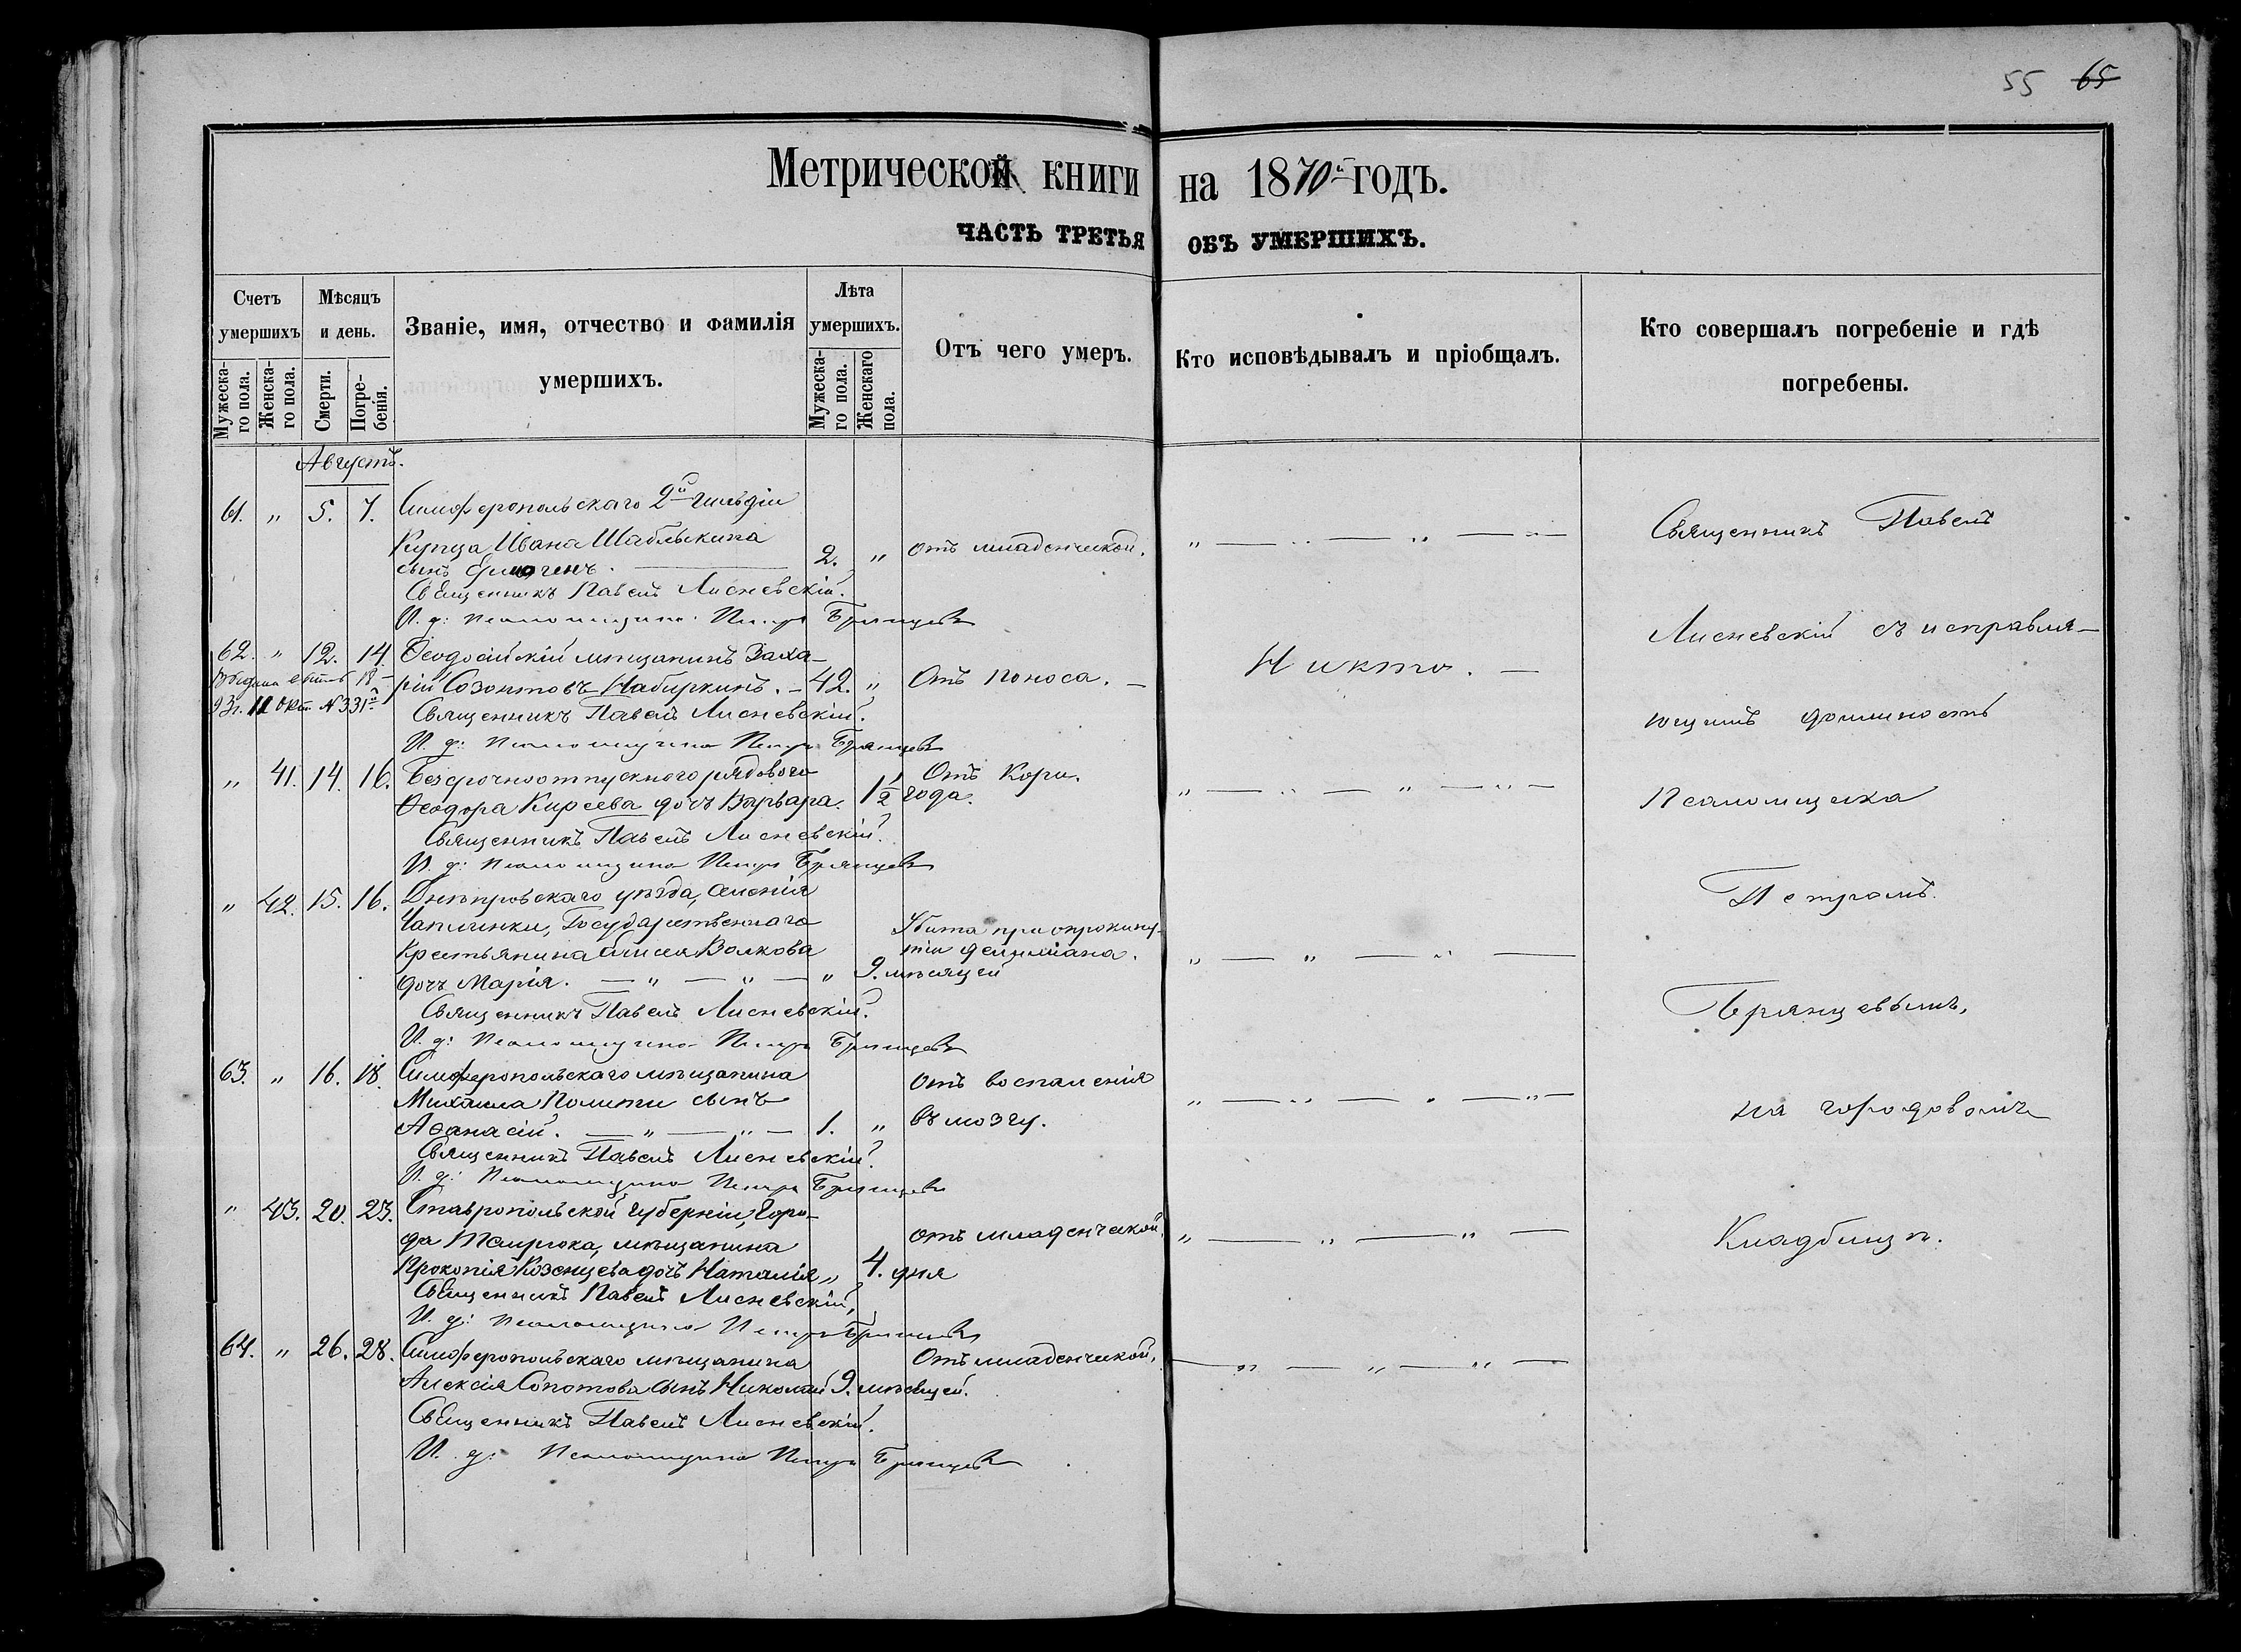 55 65
Метрической книги на 1870й годъ.
ЧАСТЬ ТРЕТЬЯ ОБЪ УМЕРШИХЪ.
Счетъ умершихъ
Мужеска-го пола.
Женска-го пола.
Мѣсяцъ и день.
Смерти.
Погре-бенія.
Званіе, имя, отчество и фамилія умершихъ.
Лѣта умершихъ.
Мужеска-го пола.
Женскаго пола.
Отъ чего умеръ.
Кто исповѣдывалъ и пріобщалъ.
Кто совершалъ погребеніе и гдѣ погребены.
Августъ.
61. " 5. 7. Симферопольскаго 2й гильдіи
Купца Ивана Шаблыкина 2. " отъ младенческой. " — " — " — "
сынъ
Священникъ Павелъ Лисневскій.
И. д: Псаломщика Петръ Брянцевъ
62. " 12. 14. Ѳеодосійскій мѣщанинъ Заха-
рій Созонтовъ Набиркинъ. — 42. " Отъ поноса. — Никто. —
93г. 11 Окт. № 331й
Священникъ Павелъ Лисневскій.
И. д: Псаломщика Петръ Брянцевъ
" 41. 14. 16. Безсрочноотпускного рядового Отъ Кори.
Ѳеодора Кирсева дочь Варвара. 1 1/2 года. " — " — " — " —
Священникъ Павелъ Лисневскій.
И. д: Псаломщика Петръ Брянцевъ
" 42. 15. 16. Днѣпровскаго уѣзда, селенія
Чаплинки, Государственнаго Убита при опрокину-
Крестьянина Волкова тіи делижана. " — " — " —
дочь Марія. — " — " — " 9. мѣсяцей
Священникъ Павелъ Лисневскій.
И. д: Псаломщика Петръ Брянцевъ
63. " 16. 18. Симферопольскаго мѣщанина отъ воспаленія
Михаила Полити сынъ " — " — " — " —
Аѳанасій. — " — " — 1. " въ мозгу.
Священникъ Павелъ Лисневскій.
И. д: Псаломщика Петръ Брянцевъ
" 43. 20. 23. Ставропольской губерніи, горо-
да Темрюка, мѣщанина отъ младенческой. " — " — " —
Прокопія Козенцева дочь Наталія " 4. дня
Священникъ Павелъ Лисневскій.
И. д: Псаломщика Петръ Брянцевъ
64. " 26. 28. Симферопольскаго мѣщанина Отъ младенческой. — " — " — " —
Алексія Сопотова сынъ Николай 9. мѣсяцей.
Священникъ Павелъ Лисневскій.
И. д: Псаломщика Петръ Брянцевъ
Священникъ Павелъ
Лисневскій съ исправля-
ющимъ должность
Псаломщика
Петромъ
Брянцевымъ,
на городовомъ
Кладбищѣ.